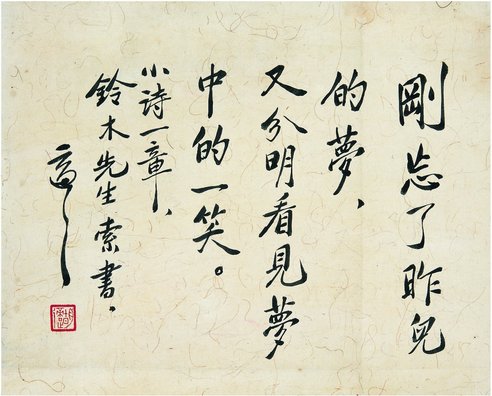 剛忘了昨兒
的夢、
又分明看見夢
中的一笑。
小詩一章、
鈴木先生索書.
適之